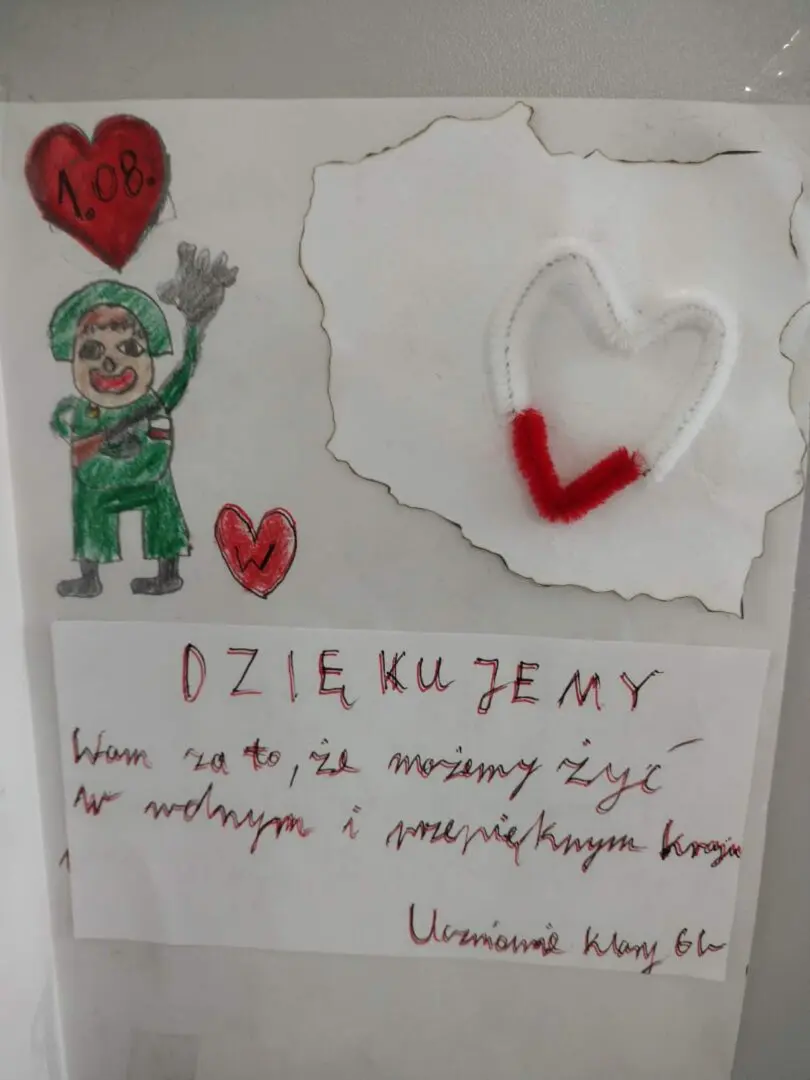 1.08.
W
DZIĘKUJEMY
Wam za to, że możemy żyć
w wolnym i przepięknym kraju
Uczniowie klasy 6b